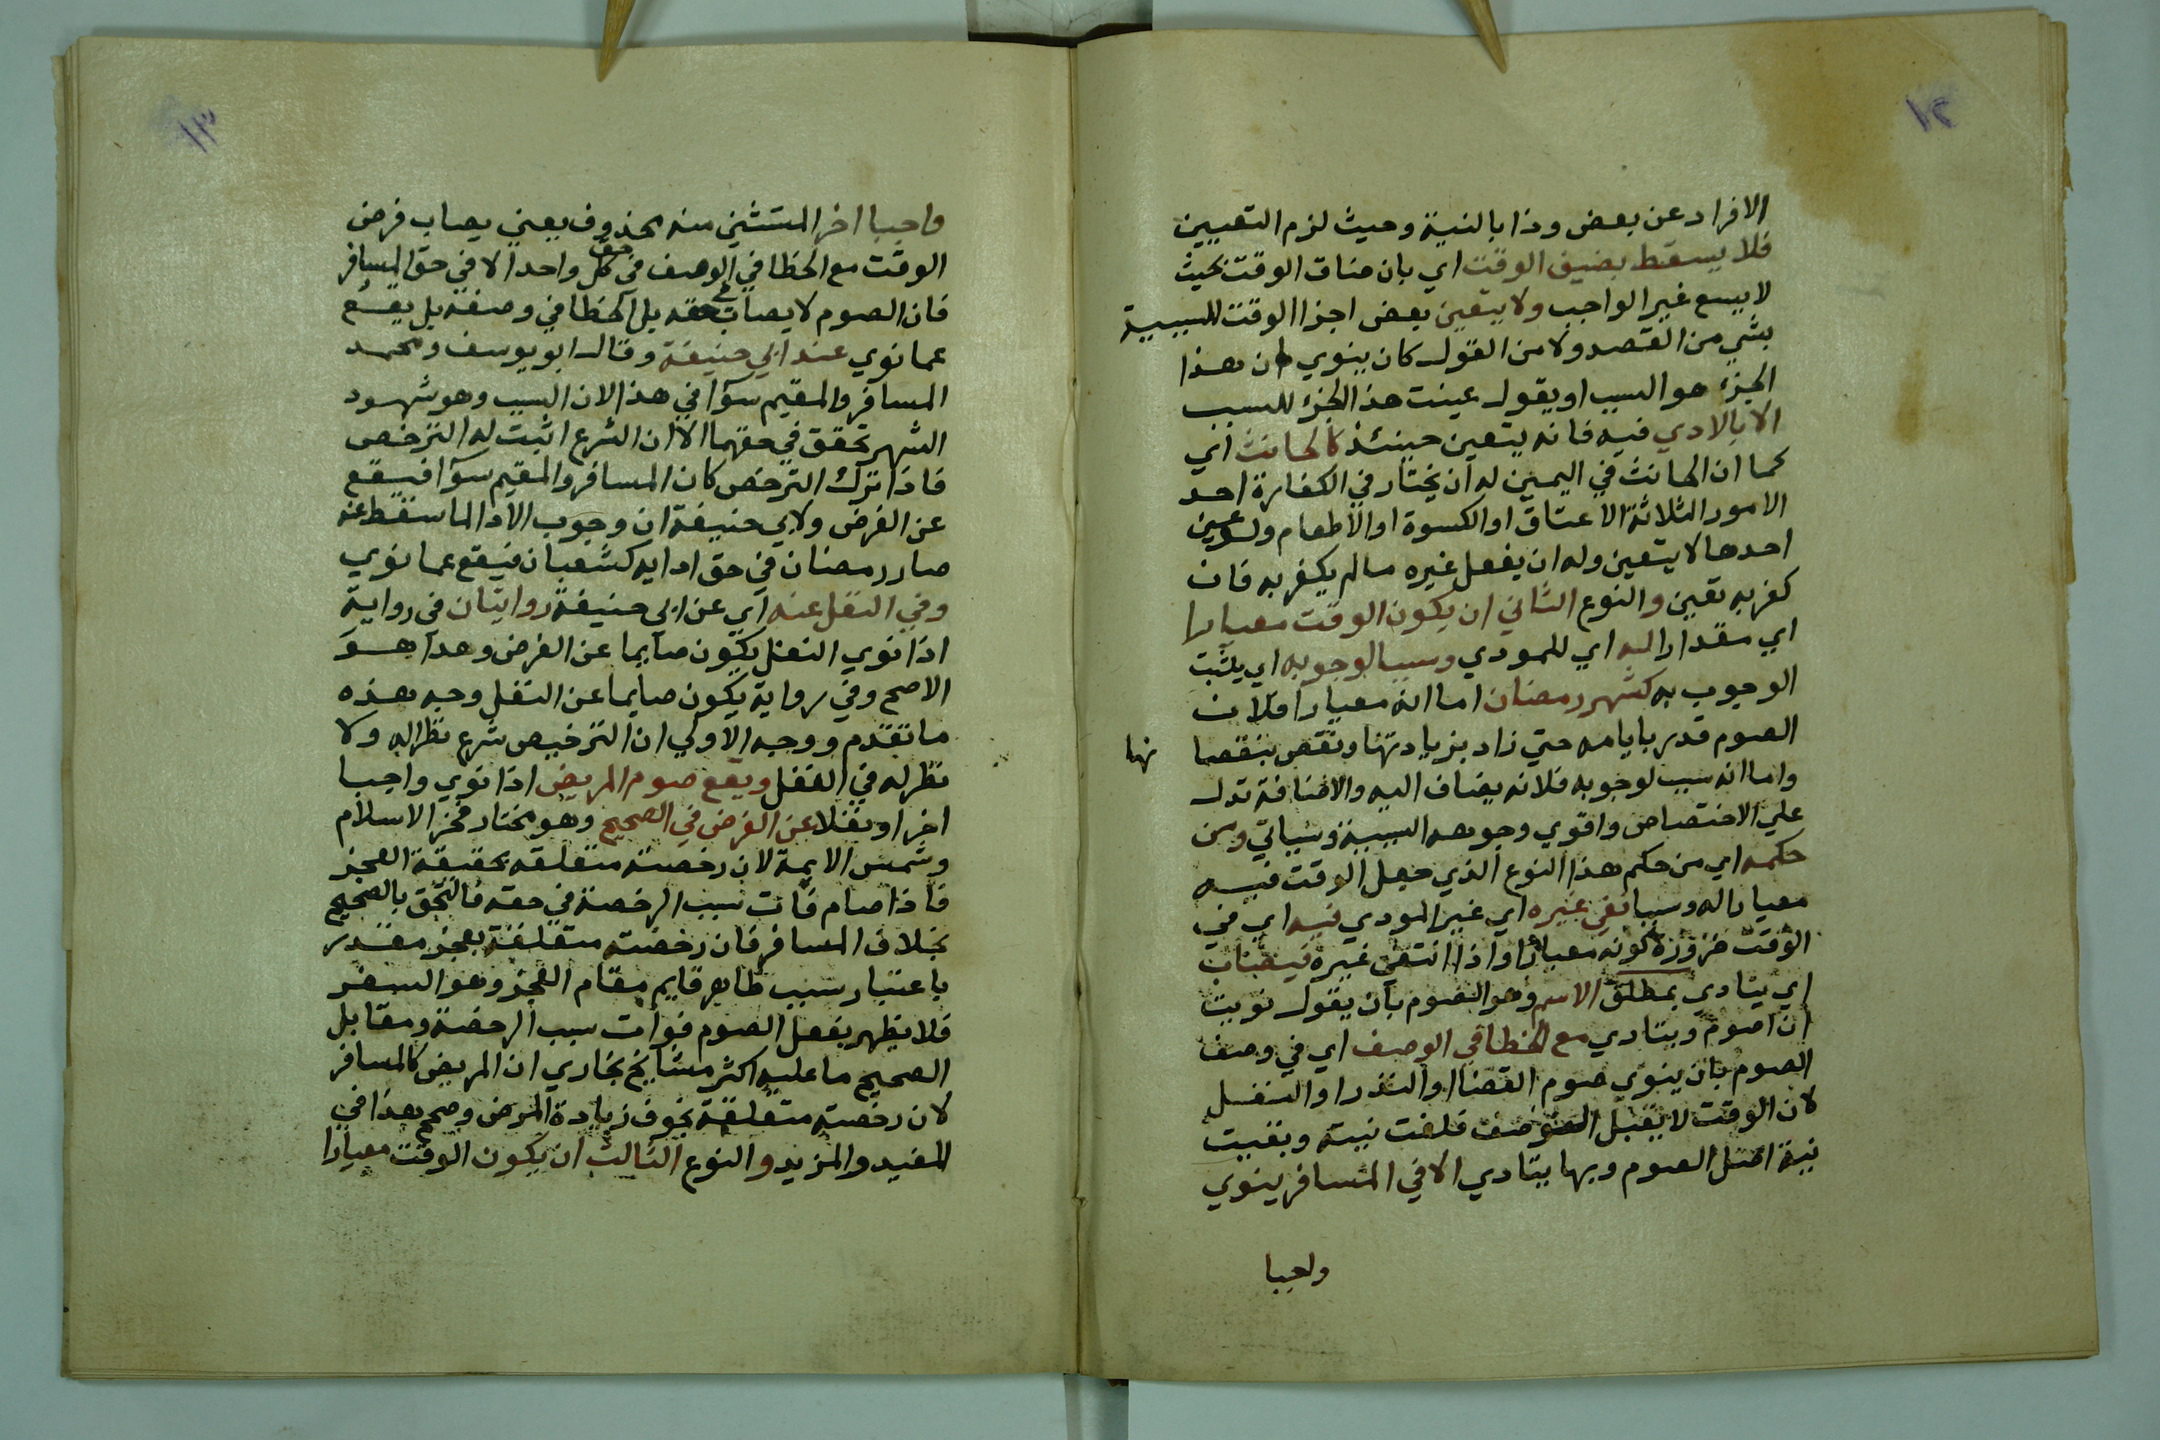 ١٢
الافراد عن بعض وذا بالنية وحيث لزم التعيين
فلا يسقط بضيق الوقت اي بان ضاق الوقت بحيث
لا يسع غير الواجب ولا يتعين بعض اجزا الوقت للسببية
بشي من القصد ولا من القول كان ينوي ان هذا
الجزء هو السبب او يقول عينت هذا الجزء للسبب
الا بالادي فيه فانه يتعين حينئذ كالحانث اي
كما ان الحانث في اليمين له ان يختار في الكفارة احد
الامور الثلاثة الاعتاق او الكسوة او الاطعام ولو عين
احدها لا يتعين وله ان يفعل غيره ما لم يكفر به فان
كفر به تعين والنوع الثاني ان يكون الوقت معيارا
اي مقدارا له اي للمودي وسببا لوجوبه اي يثبت
الوجوب به كشهر رمضان اما انه معيارا فلان
الصوم قدر بايامه حتي زاد بزيادتها ونقص بنقصا
نها
واما انه سبب لوجوبه فلانه يضاف اليه والاضافة تدل
علي الاختصاص واقوي وجوهه السببية وسياتي ومن
حكمه اي من حكم هذا النوع الذي جعل الوقت فيه
معيارا له وسببا نفي غيره اي غير المودي فيه اي في
الوقت ضرورة كونه معيارا واذا انتفي غيره فيصاب
اي يتادي بمطلق الاسم وهو الصوم بان يقول نويت
ان اصوم ويتادي مع الخطا في الوصف اي في وصف
الصوم بان ينوي صوم القضا او النذر او النفل
لان الوقت لا يقبل الوصف فلغت نيته وبقيت
نية اصل الصوم وبها يتادي الا في المسافر ينوي
واجبا
١٣
واجبا اخر المستثني منه محذوف يعني يصاب فرض
الوقت مع الخطا في الوصف في حق كل واحد الا في حق المسافر
فان الصوم لا يصاب في حقه بل الخطا في وصفه بل يقع
عما نوي عند ابي حنيفة وقال ابو يوسف ومحمد
المسافر والمقيم سوآ في هذا لان السبب وهو شهود
الشهر تحقق في حقهما الا ان الشرع اثبت له الترخص
فاذا ترك الترخص كان المسافر والمقيم سوآ فيقع
عن الفرض ولابي حنيفة ان وجوب الادا لما سقط عنه
صار رمضان في حق ادايه كشعبان فيقع عما نوي
وفي النفل عنه اي عن ابي حنيفة روايتان في رواية
اذا نوي النفل يكون صايما عن الفرض وهذا هو
الاصح وفي رواية يكون صايما عن النفل وجه هذه
ما تقدم ووجه الاولي ان الترخيص شرع نظرا له ولا
نظر له في النفل ويقع صوم المريض اذا نوي واجبا
اخر او نفلا عن الفرض في الصحيح وهو مختار فخر الاسلام
وشمس الايمة لان رخصته متعلقه بحقيقة العجز
فاذا صام فات سبب الرخصة في حقه فالتحق بالصحيح
بخلاف المسافر فان رخصته متعلقة بعجز مقدر
باعتبار سبب ظاهر قايم مقام العجز وهو السفر
فلا يظهر بفعل الصوم فوات سبب الرخصة ومقابل
الصحيح ما عليه اكثر مشايخ بخاري ان المريض كالمسافر
لان رخصته متعلقة بخوف زيادة المرض وصحح هذا في
المفيد والمزيد والنوع الثالث ان يكون الوقت معيارا